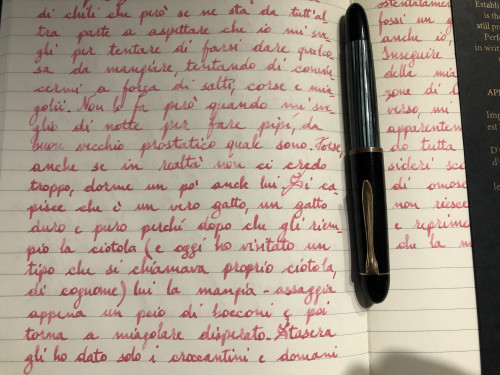 di chili che però se ne sta da tutt'al
tra parte a aspettare che io mi sve
gli per tentare di farsi dare qualco
sa da mangiare, tentando di convin
cermi a forza di salti, corse e mia
golii. Non lo fa però quando mi sve
glio di notte per fare pipì, da
buon vecchio prostatico quale sono. Forse,
anche se in realtà non ci credo
troppo, dorme un po' anche lui. Si ca
pisce che è un vero gatto, un gatto
duro e puro perché dopo che gli riem
pio la ciotola (e oggi ho visitato un
tipo che si chiamava proprio ciotola,
di cognome) lui la mangia - assaggia
appena un paio di bocconi e poi
torna a miagolare disperato. Stasera
gli ho dato solo i croccantini e domani
ostentatamen
fossi un g
anche io,
Inseguire
della mia
zone di l
verso, mi
apparentem
do tutta
sideri sec
di omose
non riesce
e reprime
che la m
Establi
is the
still pr
Perf
in writ
AP
Imp
est
D